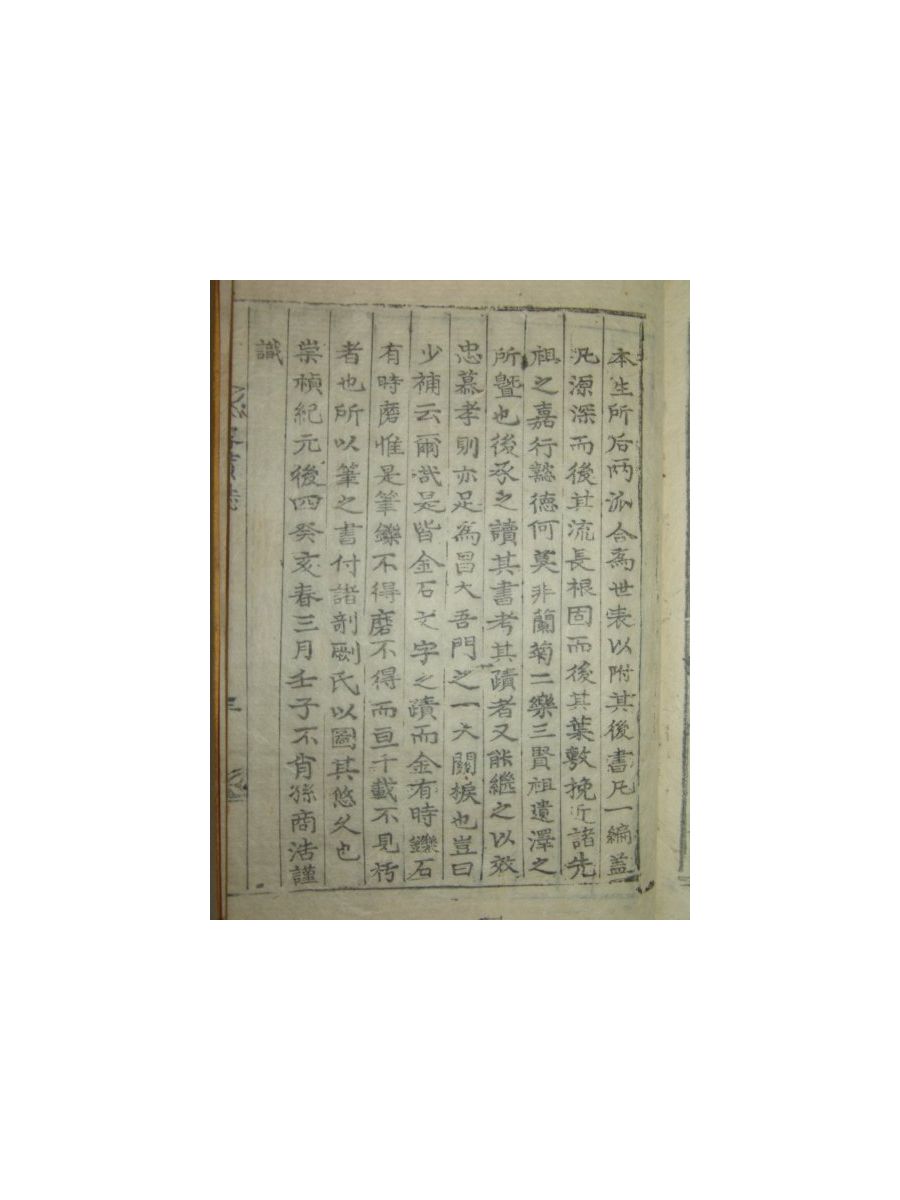 本生所后兩派合爲世表以附其後書凡一編蓋
汎源深而後其流長根固而後其葉敷挽近諸先
祖之嘉行懿德何莫非蘭菊二樂三賢祖遺澤之
所曁也後承之讀其書考其蹟者又能繼之以效
忠慕孝則亦足爲昌大吾門之一大關棙也豈曰
少補云爾哉是皆金石文字之蹟而金有時鑠石
有時磨惟是筆鑠不得磨不得而亘千載不見朽
者也所以筆之書付諸剞劂氏以圖其悠久也
崇楨紀元後四癸亥春三月壬子不肖孫商浩謹
識